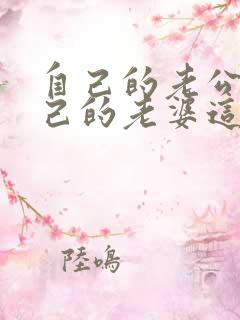 自己的老公
己的老婆這
陸鳴